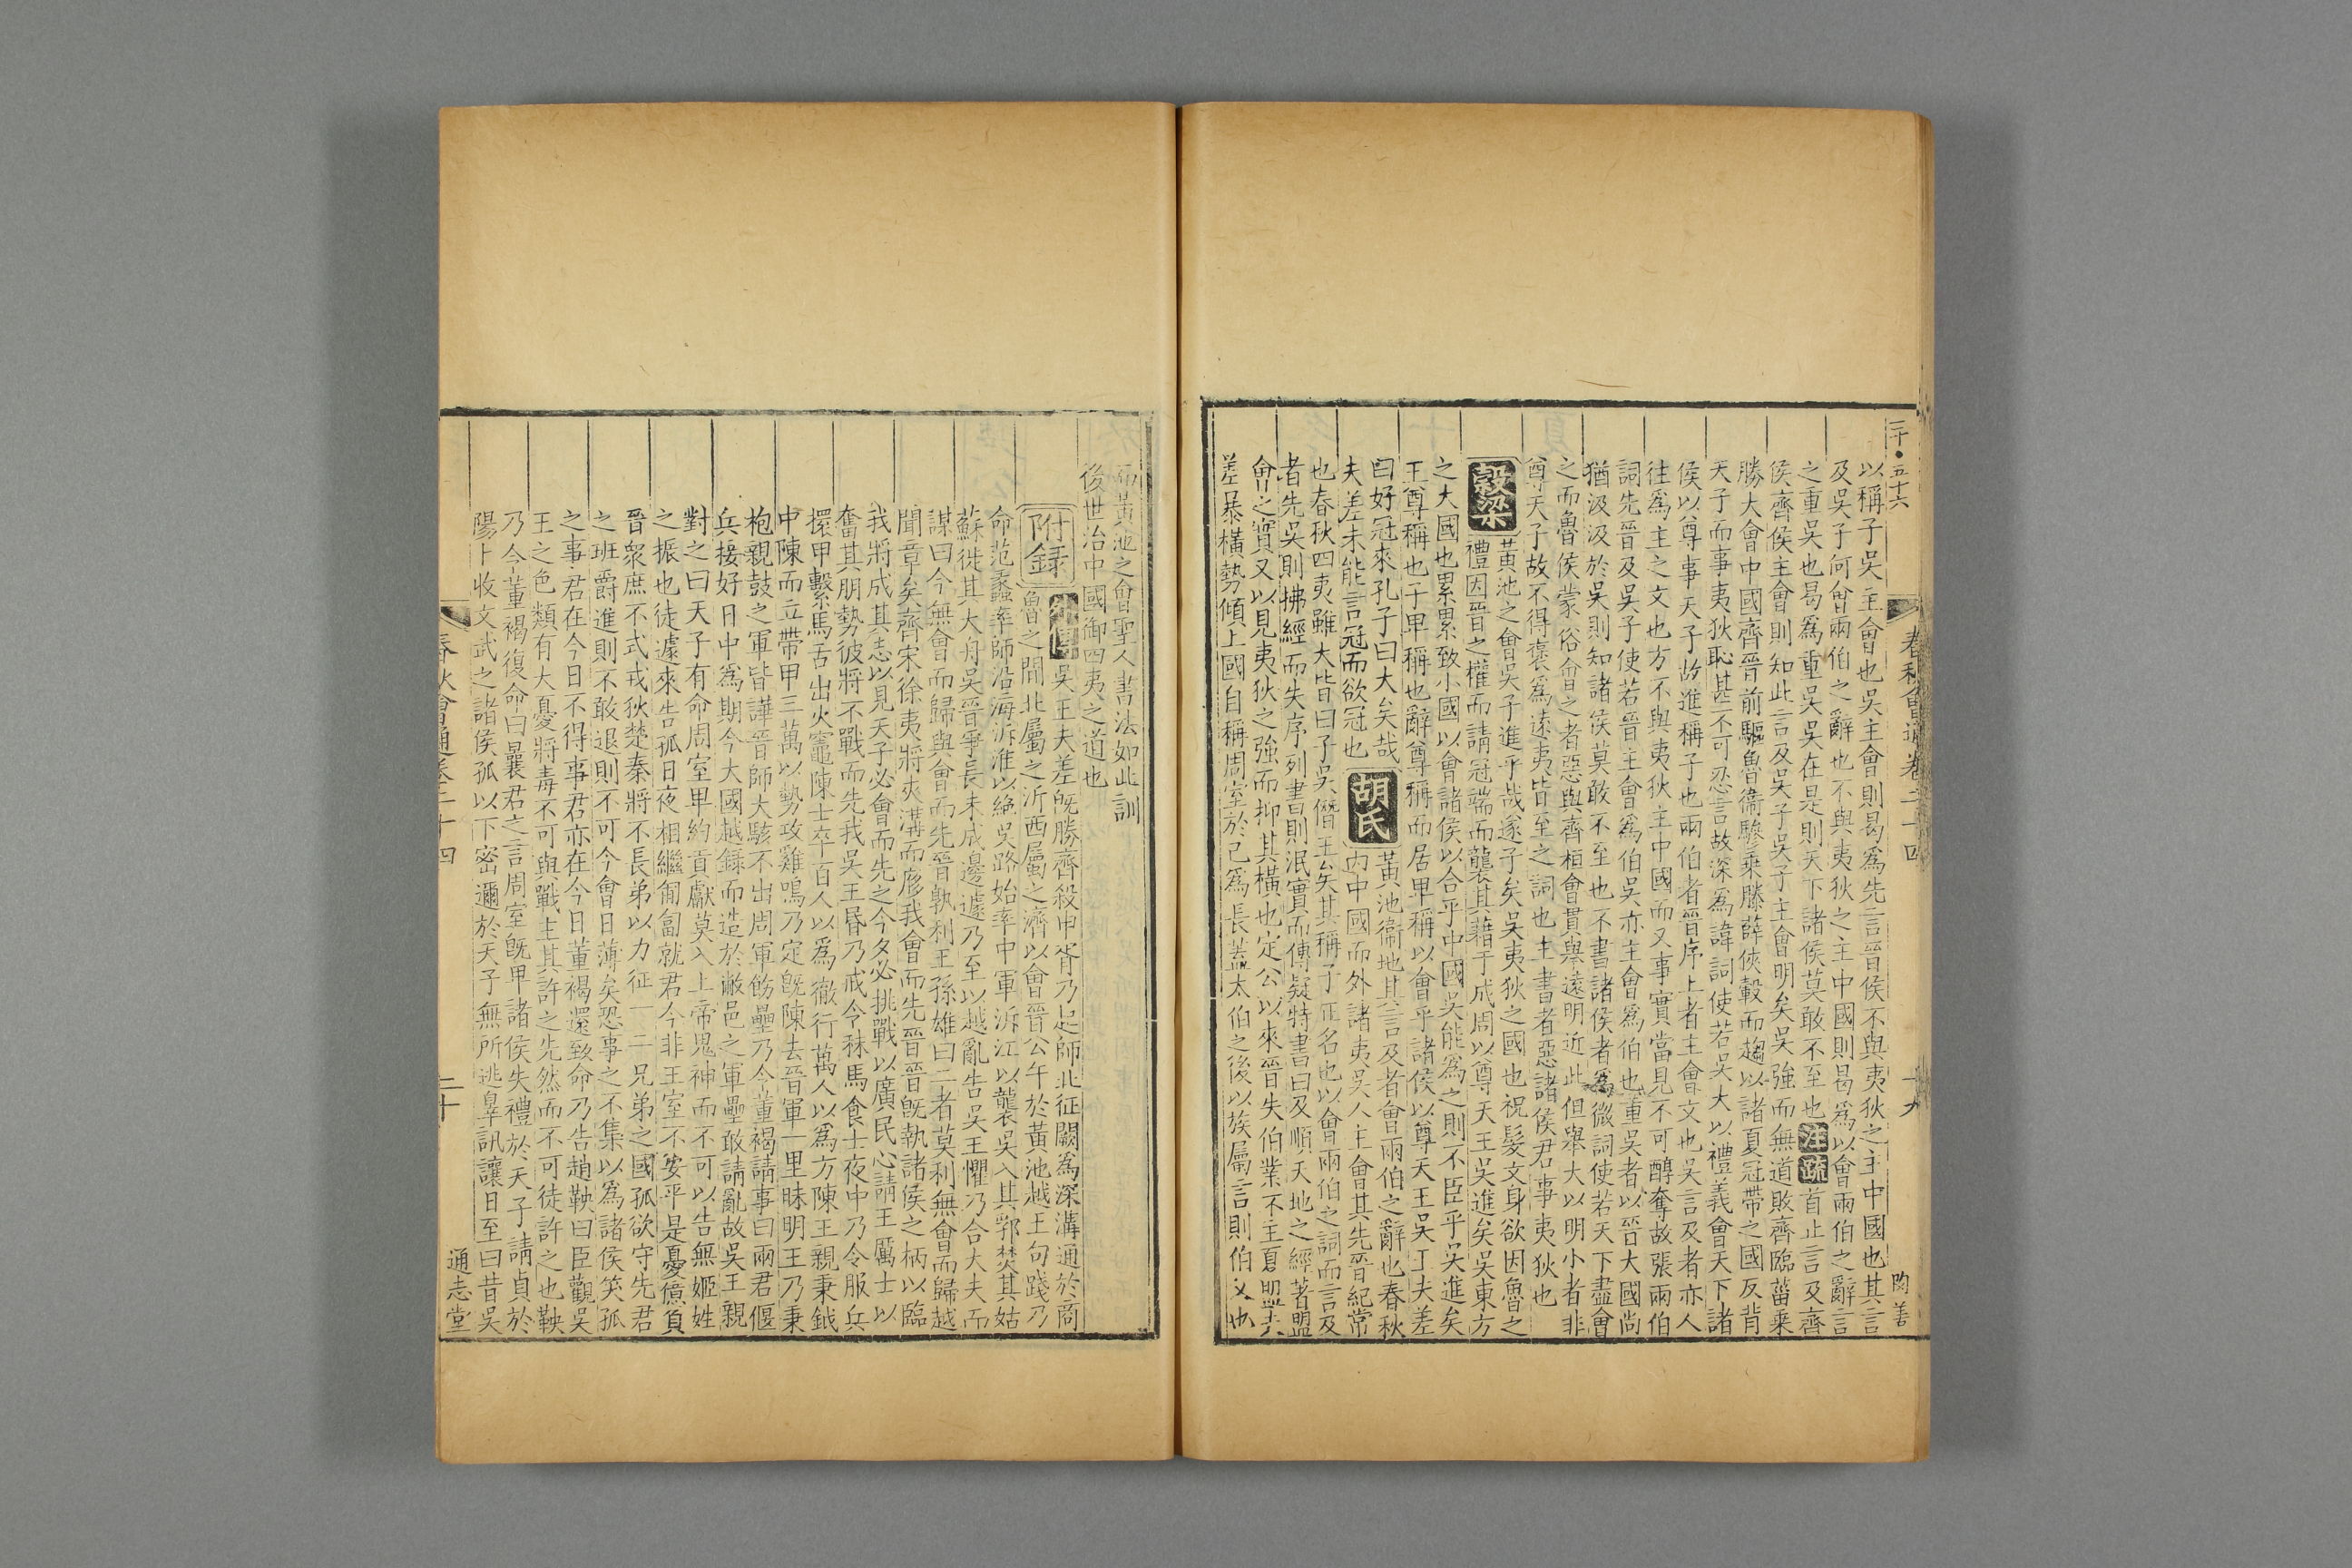 三十•五十六
春秋會通卷二十四
十九
陶善
以稱子吳主會也吳主會則曷爲先言晉侯不與夷狄之主中國也其言
及吳子何會兩伯之辭也不與夷狄之主中國則曷爲以會兩伯之辭言
之重吳也曷爲重吳吳在是則天下諸侯莫敢不至也注疏首止言及齊
侯齊侯主會則知此言及吳子吳子主會明矣吳強而無道敗齊臨菑乘
勝大會中國齊晉前驅魯衞驂乘滕薛俠轂而趨以諸夏冠帶之國反背
天子而事夷狄恥甚不可忍言故深爲諱詞使若吳大以禮義會天下諸
侯以尊事天子故進稱子也兩伯者晉序上者主會文也吳言及者亦人
往爲主之文也方不與夷狄主中國而又事實當見不可醇奪故張兩伯
詞先晉及吳子使若晉主會爲伯吳亦主會爲伯也重吳者以晉大國尚
猶汲汲於吳則知諸侯莫敢不至也不書諸侯者爲微詞使若天下盡會
之而魯侯蒙俗會之者惡與齊桓會貫舉遠明近此但舉大以明小者非
尊天子故不得褒爲遠夷皆至之詞也主書者惡諸侯君事夷狄也
穀梁黃池之會吳子進乎哉遂子矣吳夷狄之國也祝髮文身欲因魯之
禮因晉之權而請冠端而襲其藉于成周以尊天王吳進矣吳東方
之大國也累累致小國以會諸侯以合乎中國吳能爲之則不臣乎吳進矣
王尊稱也子卑稱也辭尊稱而居卑稱以會乎諸侯以尊天王吳王夫差
曰好冠來孔子曰大矣哉
夫差未能言冠而欲冠也
胡氏黃池衞地其言及者會兩伯之辭也春秋
內中國而外諸夷吳人主會其先晉紀常
也春秋四夷雖大皆曰子吳僭王矣其稱子正名也以會兩伯之詞而言及
者先吳則拂經而失序列書則泯實而傳疑特書曰及順天地之經著盟
會之實又以見夷狄之強而抑其橫也定公以來晉失伯業不主夏盟夫
差暴橫勢傾上國自稱周室於己爲長蓋太伯之後以族屬言則伯父也
而黃池之會聖人書法如此訓
後世治中國御四夷之道也
附錄外傳吳王夫差旣勝齊殺申胥乃起師北征闕爲深溝通於商
魯之間北屬之沂西屬之濟以會晉公午於黃池越王句踐乃
命范蠡率師沿海泝淮以絕吳路始率中軍泝江以襲吳入其郛焚其姑
蘇徙其大舟吳晉爭長未成邊遽乃至以越亂告吳王懼乃合大夫而
謀曰今無會而歸與會而先晉孰利王孫雄曰二者莫利無會而歸越
聞章矣齊宋徐夷將夾溝而㢋我會而先晉晉旣執諸侯之柄以臨
我將成其志以見天子必會而先之今夕必挑戰以廣民心請王厲士以
奮其朋勢彼將不戰而先我吳王昏乃戒令秣馬食士夜中乃令服兵
擐甲繫馬舌出火竈陳士卒百人以爲徹行萬人以爲方陳王親秉鉞
中陳而立帶甲三萬以勢攻雞鳴乃定旣陳去晉軍一里昧明王乃秉
枹親鼓之軍皆譁晉師大駭不出周軍飭壘乃令董褐請事曰兩君偃
兵接好日中爲期今大國越錄而造於敝邑之軍壘敢請亂故吳王親
對之曰天子有命周室卑約貢獻莫入上帝鬼神而不可以告無姬姓
之振也徒遽來告孤日夜相繼匍匐就君今非王室不安平是憂億負
晉衆庶不式戎狄楚秦將不長弟以力征一二兄弟之國孤欲守先君
之班爵進則不敢退則不可今會日薄矣恐事之不集以爲諸侯笑孤
之事君在今日不得事君亦在今日董褐還致命乃告趙鞅曰臣觀吳
王之色類有大憂將毒不可與戰主其許之先然而不可徒許之也鞅
乃令董褐復命曰曩君之言周室旣卑諸侯失禮於天子請貞於
陽卜收文武之諸侯孤以下密邇於天子無所逃辠訊讓日至曰昔吳
春秋會通卷二十四
二十
通志堂